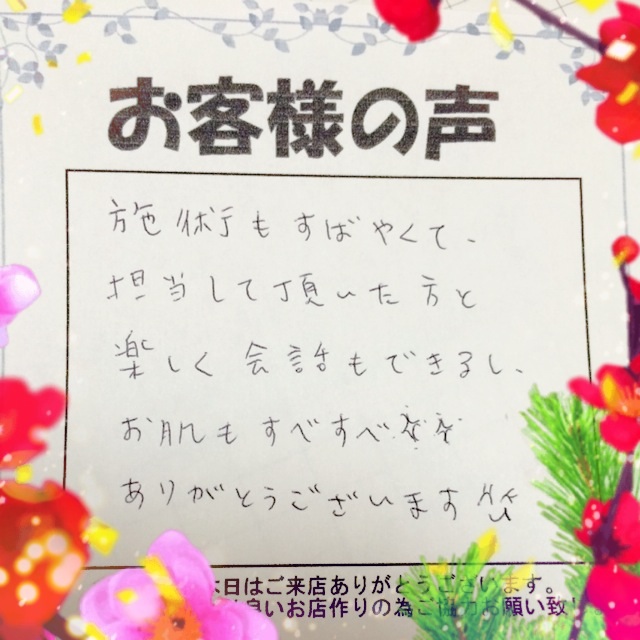 お客様の声
施術もすばやくて、
担当して頂いた方と
楽しく会話もできるし、
お肌もすべすべ☆☆
ありがとうございます^^
本日はご来店ありがとうございます。
良いお店作りの為ご協力お願い致